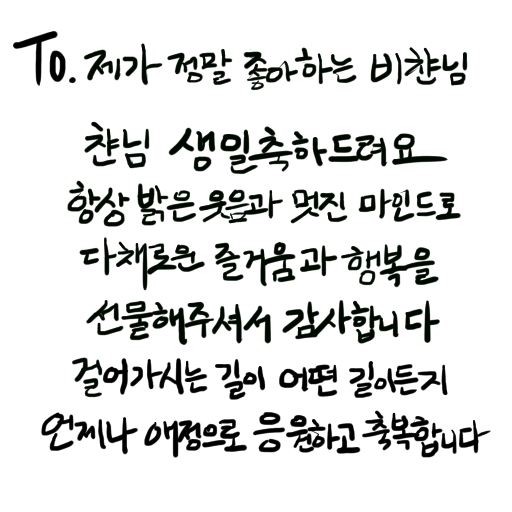 To. 제가 정말 좋아하는 비챤님
챤님 생일축하드려요
항상 밝은 웃음과 멋진 마인드로
다채로운 즐거움과 행복을
선물해주셔서 감사합니다
걸어가시는 길이 어떤 길이든지
언제나 애정으로 응원하고 축복합니다